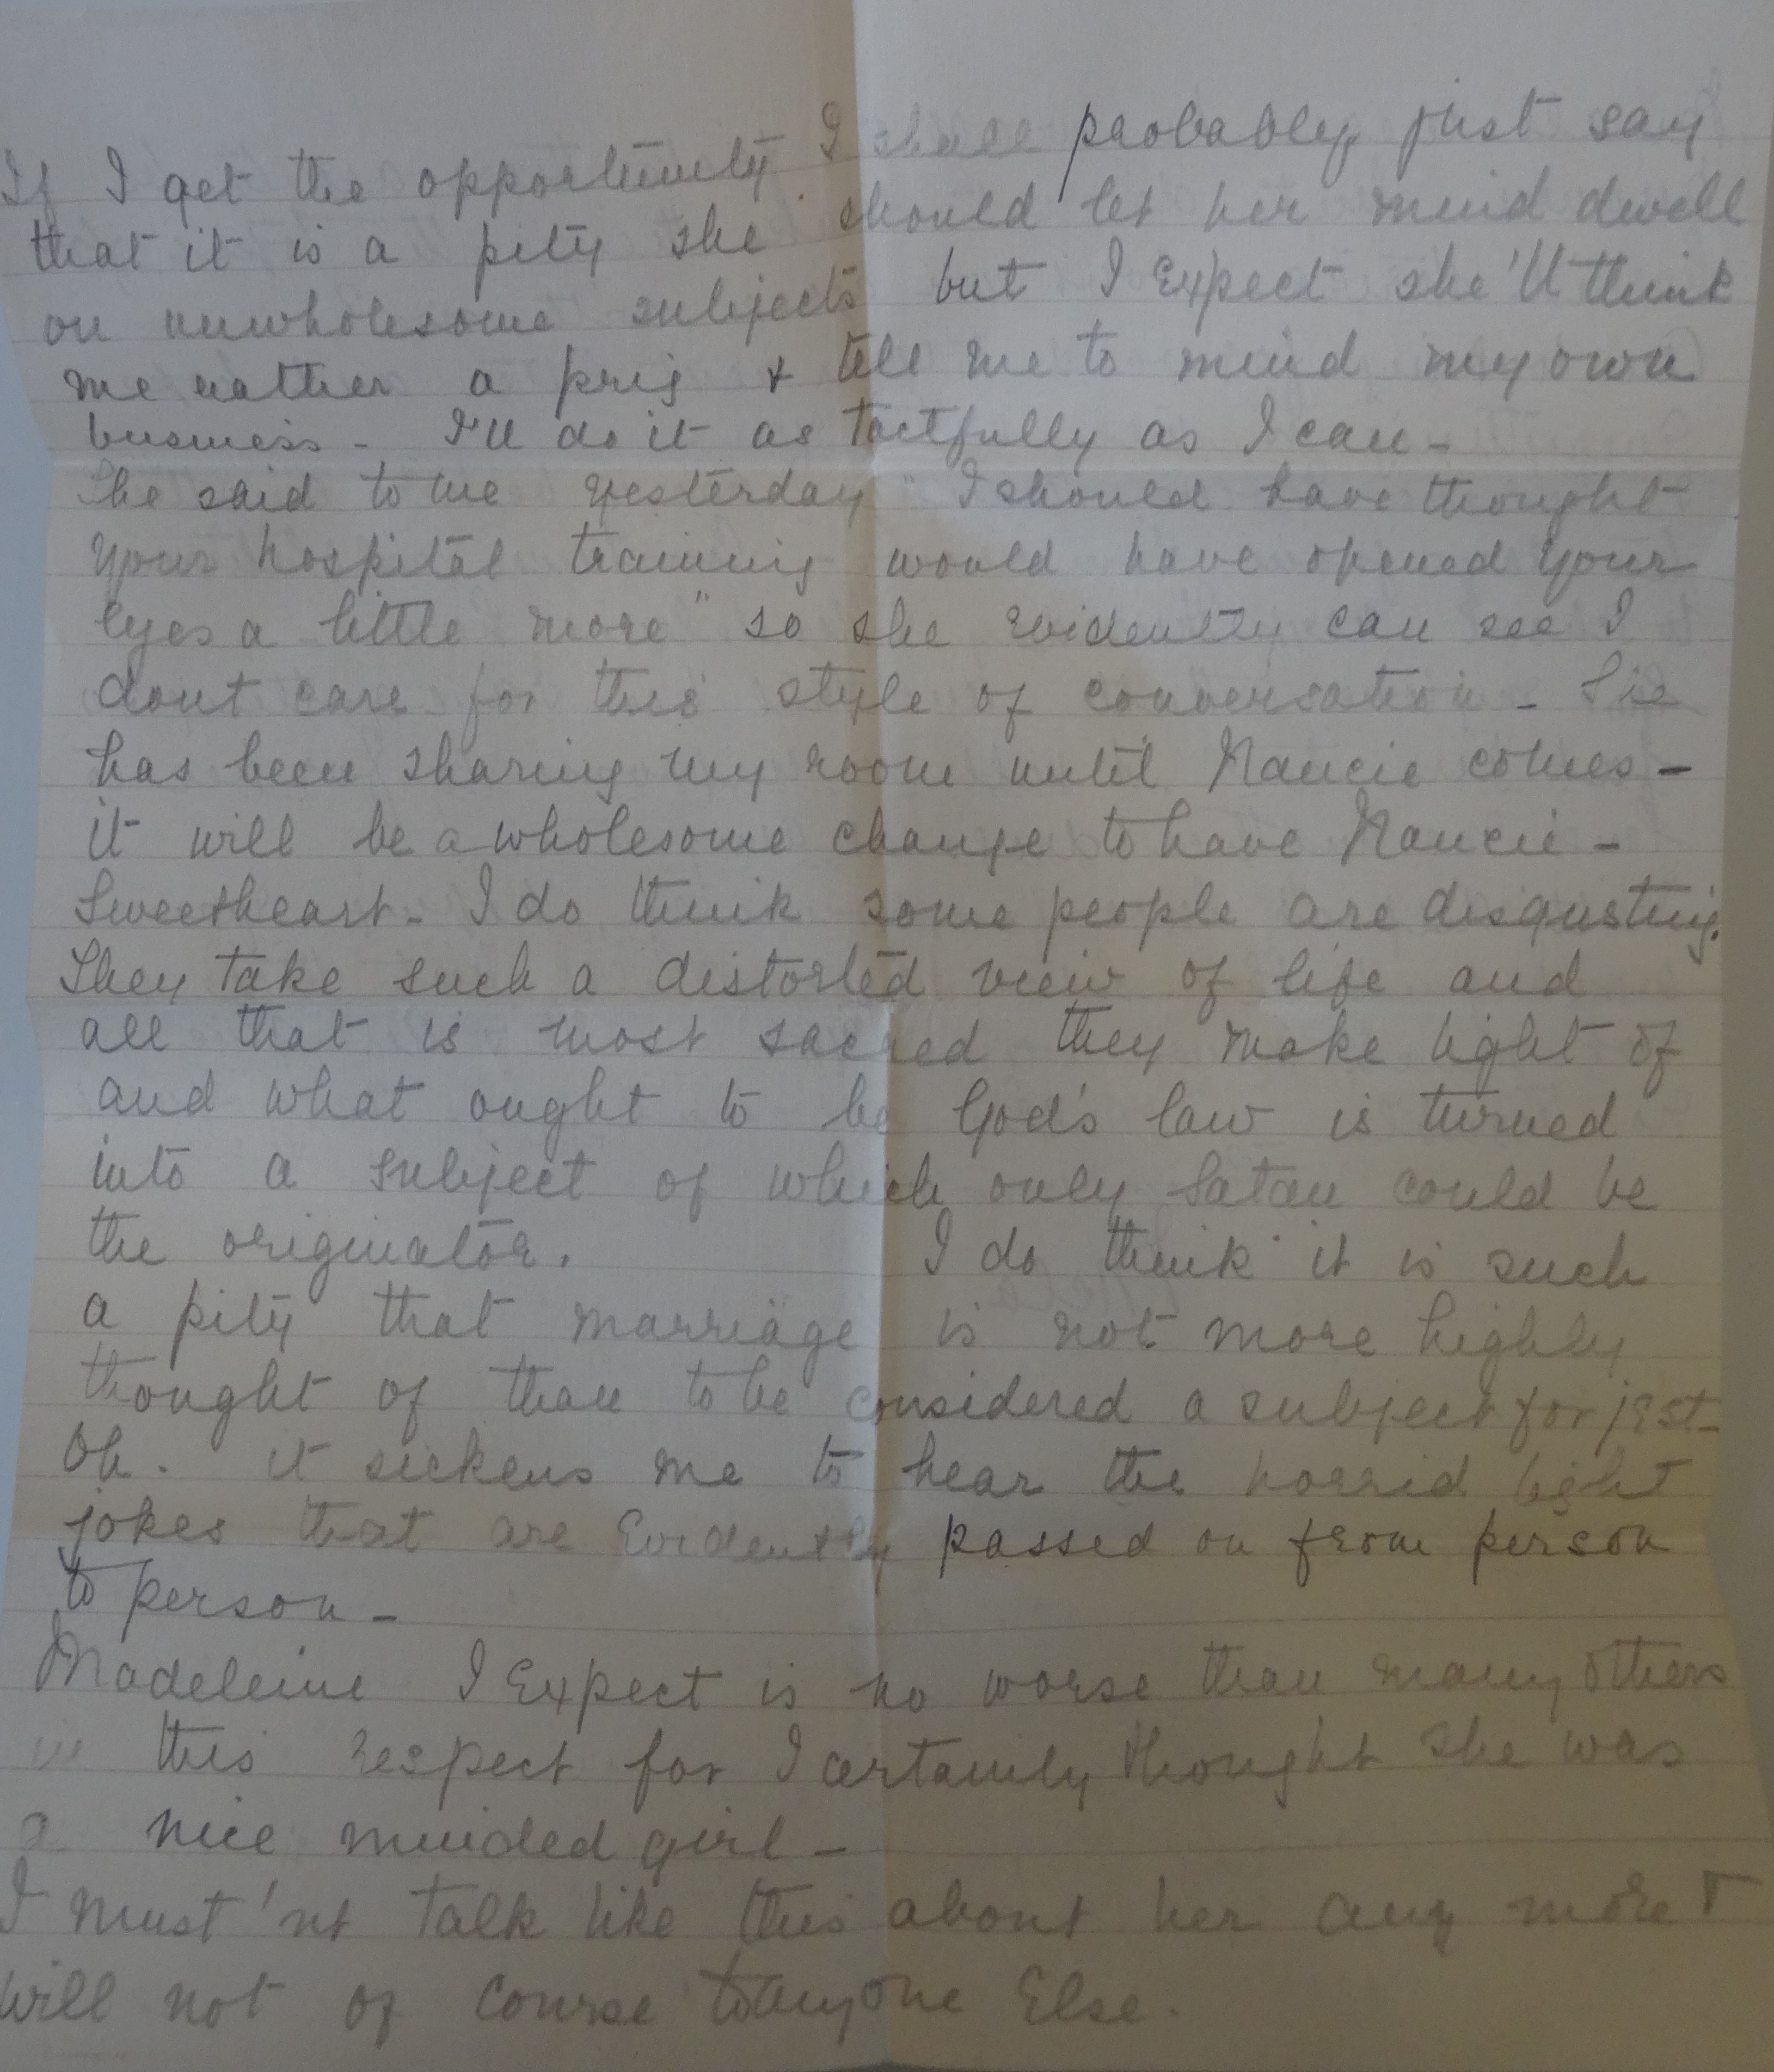 If I get the opportunity I shall probably just say
that it is a pity she should let her mind dwell
on unwholesome subjects but I Expect she'll think
me rather a prig + tell me to mind my own
business - I'll do it as tactfully as I can -
She said to me yesterday "I should have thought
your hospital training would have opened your
Eyes a little more" so she Evidently can see I
dont care for this style of conversation - She
has been sharing my room until Nancie comes -
it will be a wholesome change to have Nancie -
Sweetheart - I do think some people are disgusting.
They take such a distorted view of life and
all that is most sacred they make light of
and what ought to be God's law is turned
into a subject of which only Satan could be
the originator. I do think it is such
a pity that marriage is not more highly
thought of than to be considered a subject for jest -
Oh. it sickens me to hear the horrid light
jokes that are Evidently passed on from person
to person -
Madeleine I Expect is no worse than many others
in this respect for I certainly thought she was
a nice minded girl -
I must'nt talk like this about her any more +
will not of course to anyone Else.